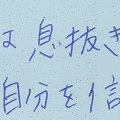 は 息抜き
自分を信